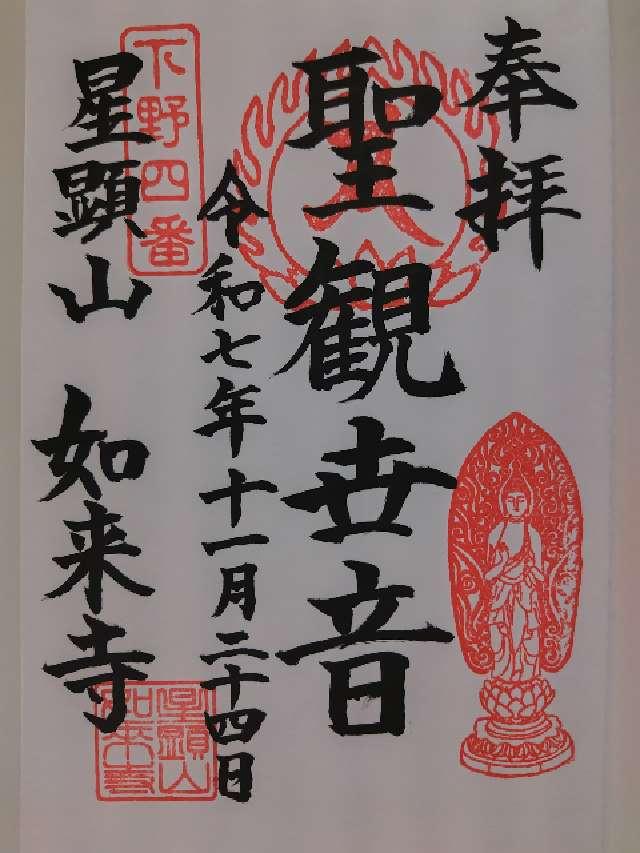 奉拝
聖観世音
令和七年十一月二十四日
下野四番
星顕山 如来寺
星顕山
如来寺